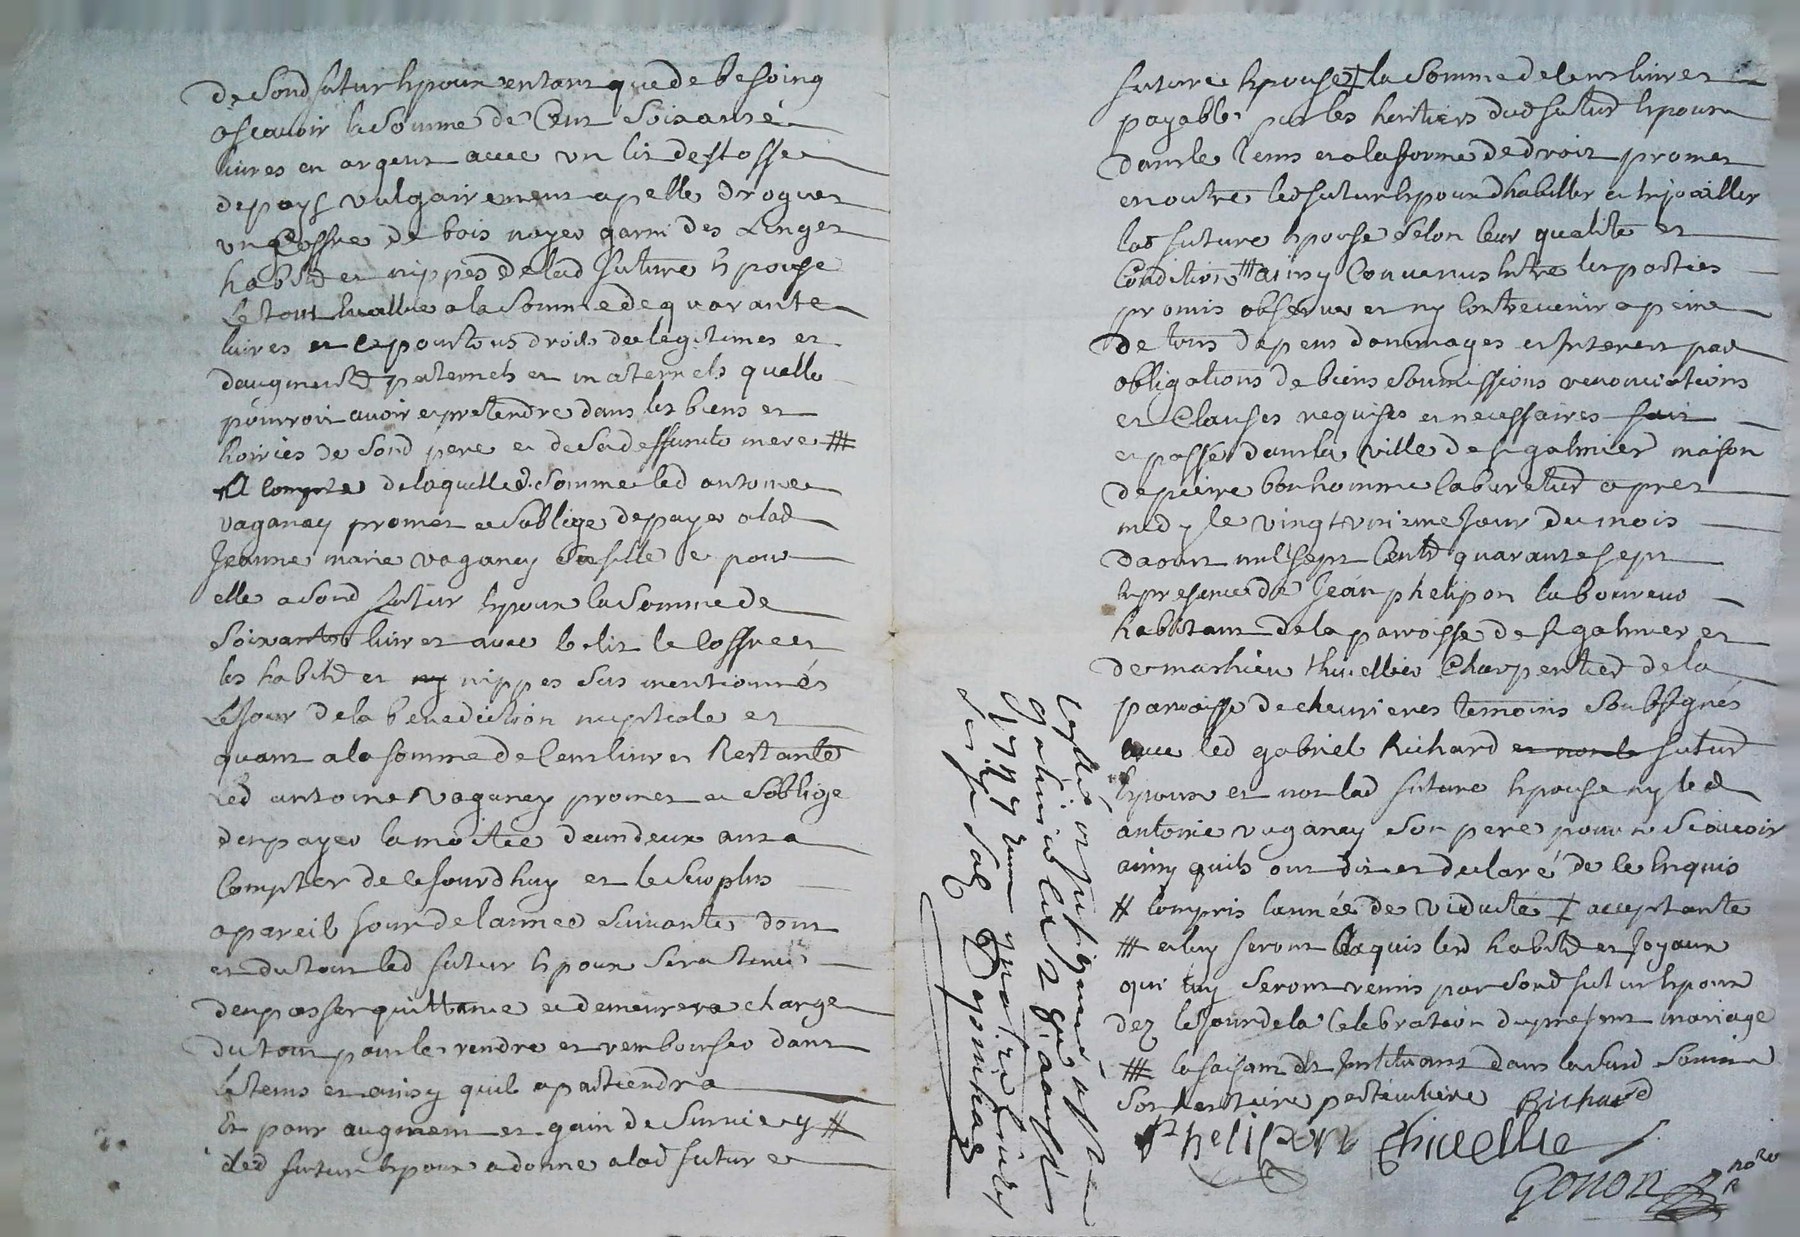 de sond futur hpoux entant que de besoing
ascavoir la somme de Cent Soixante
livres en argent avec un lit destoffe
depays vulgairement apellé droguet
un Coffre de bois noyer garni des Linges
habitz et nippes de lad future hpouse
Le tout hvallué a la somme de quarante
livres et ce pour tous droits de legitimes et
daugmentz paternels et maternels quelle
pourroit avoir et pretendre dans les biens et
hoiries de sond pere et de sad deffunte mere ⧻
A Compte de laquelle d. somme led antoine
vaganay promet et soblige depayer a lad
Jeanne marie vaganay sa fille et pour
elle a sond futur hpoux la somme de
Soixante livres avec le lit le Coffre et
les habitz et nippes sus mentionnés
Le Jour de la benediction nuptiale et
quant a la somme de Cent livres Restante
Led antoine vaganay promet et soblige
den payer la moitié deux deux ans a
Compter de ce Jourdhuy et le surplus
a pareil Jour de lannee suivante dont
et du tout led futur hpoux sera tenu
den passer quittance et demeurera chargé
du tout pour le rendre et rembourser dans
le tems et ainsy quil apartiendra
Et pour augment et gain de survie y #
led futur hpoux a donné a lad future
future hpouse ‡ la somme de Cent livres
payable par les heritiers dud futur hpoux
dans le tems et a la forme de droit promet
en outre led futur hpoux dhabiller et Enjoailler
lad future hpouse selon leur qualité et
Condition ⧻ ainsy Convenus Entre les parties
promis observer et ny Contrevenir a peine
de tous depens dommages et Interest par
obligations de biens soumissions renonciations
et Clauses requises et necessaires fait
et passé dans la ville de st galmier maison
de pierre bonhomme Cabaretier apres
midy le vingt unieme Jour du mois
daoust mil sept Centz quarante sept
En presence de Jean phelipon laboureur
habitant de la paroisse de st galmier et
de mathieu thivellier Charpentier de la
paroisse de chevrieres temoins soubsignés
avec led gabriel Richard futur
hpoux et non lad future hpouse ny led
antoine vaganay son pere pour ne scavoir
ainsy quils ont dit et declaré de ce Enquis
# Compris lannée de viduité ‡ acceptante
⧻ et luy seront acquis lesd habitz et Joyaux
qui luy seront remis par sond futur hpoux
dez le Jour de la Celebration du present mariage
⧻ la faisant et Instituant dans la susd somme
son heritiere particuliere Richard
Phelipon thivellie
Gonon no.re R
Controllé et Insinué a st
galmier le 2 7. aoust
1747 Reçu quatre livres